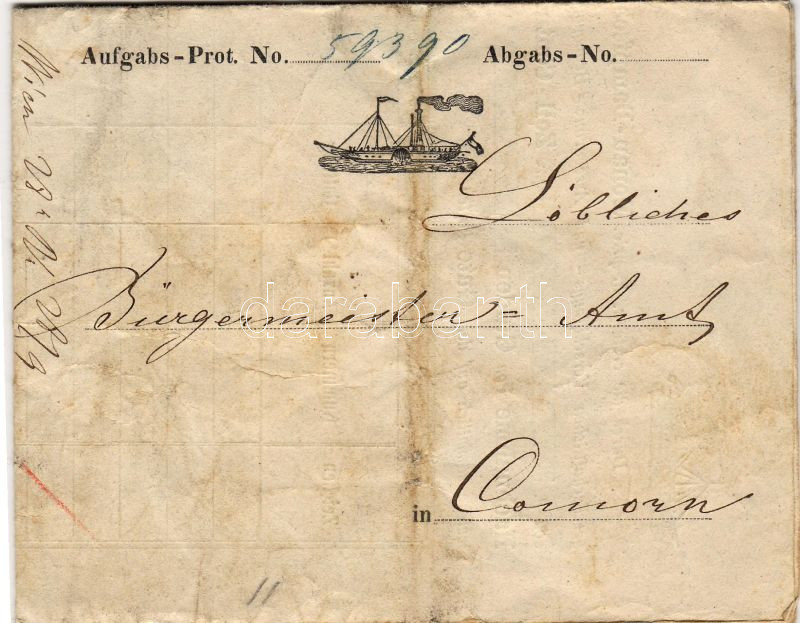 Aufgabs-Prot. No. 59390 Abgabs-No.
Löbliches
Bürgermeister= Amt
in Comorn
Wien
11
darabanth